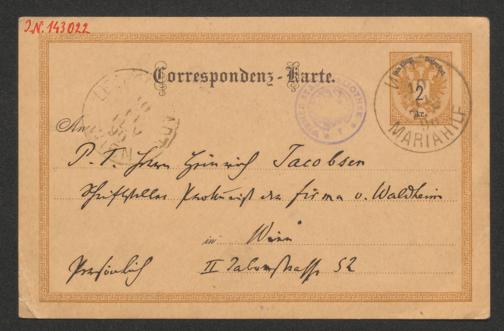 J.N. 143022
Correspondenz-Karte.
2 kr.
MARIAHILF
An
P. T. Herrn Heinrich Jacobsen
Schriftsteller Prokurist der Firma v. Waldheim
in Wien
Persönlich II Taborstrasse 52